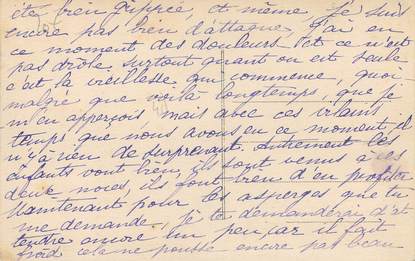 été bien grippée, et même je suis
encore pas bien d'attaque, j'ai en
ce moment des douleurs et ce n'est
pas drôle surtout quant on est seule
c'est la vieillesse qui commence, quoi
malgré que voilà longtemps que je
m'en apperçois mais avec ces vilains
temps que nous avons en ce moment il
n'y a rien de surprenant. Autrement les
enfants vont bien, ils sont venus a ces
deux noces, ils ont bien d'en profiter
Maintenant pour les asperges que tu
me demande, je te demanderai d'at
tendre encore un peu car il fait
froid cela ne pousse encore pas beau